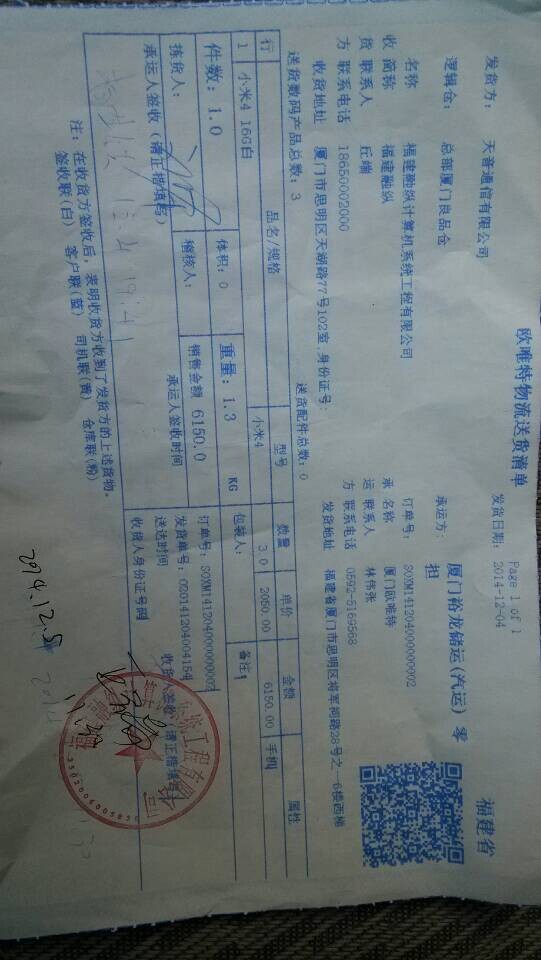 欧唯特物流送货清单
Page 1 of 1
发货日期: 2014-12-04
福建省
发货方: 天音通信有限公司
承运方: 厦门裕龙储运(汽运) 零担
逻辑仓: 总部厦门良品仓
订单号: SOXM14120400000002
收货方
名称 福建融纵计算机系统工程有限公司
简称 福建融纵
联系人 丘端
联系电话 18650002000
收货地址 厦门市思明区天湖路77号102室,身份证号:
承运方
名称 厦门欧唯特
联系人 林伟张
联系电话 0592-5169568
发货地址 福建省厦门市思明区将军祠路28号之一6楼西梯
送货数码产品总数: 3
送货配件总数: 0
行 品名/规格 型号 数量 单价 金额 属性
1 小米4 16G白 小米4 3.0 2050.00 6150.00 手机
件数: 1.0 体积: 0 重量: 1.3 KG 包装人: 备注:
拣货人: 稽核人: 销售金额 6150.0
订单号: SOXM14120400000002
发货单号: 0201412040004154
承运人签收(请正楷填写) 承运人签收时间
送达时间 收货人签收(请正楷填写)
12.4 19:41
收货人身份证号码
注: 在收货方签收后, 表明收货方收到了发货方的上述货物。
签收联(白) 客户联(蓝) 司机联(黄) 仓库联(粉)
2014.12.5